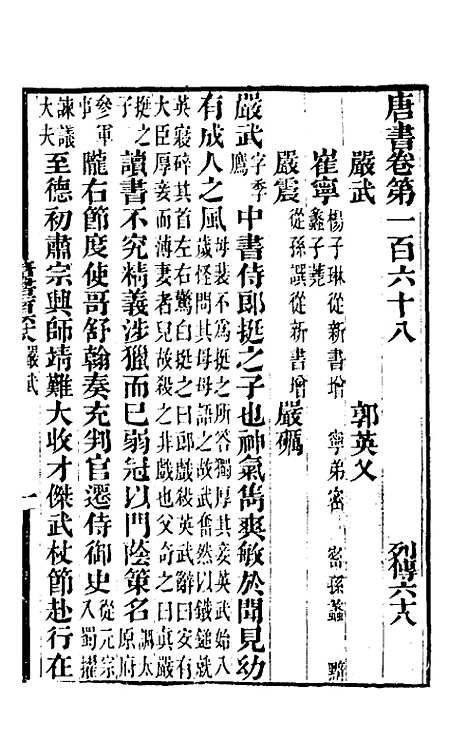 唐書卷第一百六十八 列傳六十八
嚴武 郭英乂
崔寧 楊子琳從新書增 寧弟密 密孫蠡 黯 蠡子蕘
嚴震 從孫譔從新書增 嚴礪
嚴武字季鷹中書侍郎挺之子也神氣雋爽敏於聞見幼
有成人之風母裴不爲挺之所答獨厚其妾英武始八歲怪問其母母語之故武奮然以鐵鎚就
英寢碎其首左右驚白挺之曰郎戲殺英武辭曰安有大臣厚妾而薄妻者兒故殺之非戲也父奇之曰真嚴
挺之子讀書不究精義涉獵而已弱冠以門蔭策名調太原府
參軍事隴右節度使哥舒翰奏充判官遷侍御史從元宗入蜀擢
諫議大夫至德初肅宗興師靖難大收才傑武杖節赴行在
嚴武 一